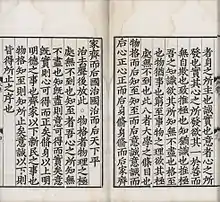 者身之所主也誠實也意者心之所
發也實其心之所發欲其
無自欺也致推極也知猶識也推極
吾之知識欲其所知無不盡也格至
也物猶事也窮至事物之理欲其極
處無不到也此八者大學之條目也
物格而后知至知至而后意誠意誠而
后心正心正而后身脩身脩而后家齊
家齊而后國治國治而后天下平
治去聲後放此○物格者物理之極
處無不到也知至者吾心之所知無
不盡也知既盡則意可得而實矣意
既實則心可得而正矣脩身以上明
明德之事也齊家以下新民之事也
物格知至則知所止矣意誠以下則
皆得所止之序也